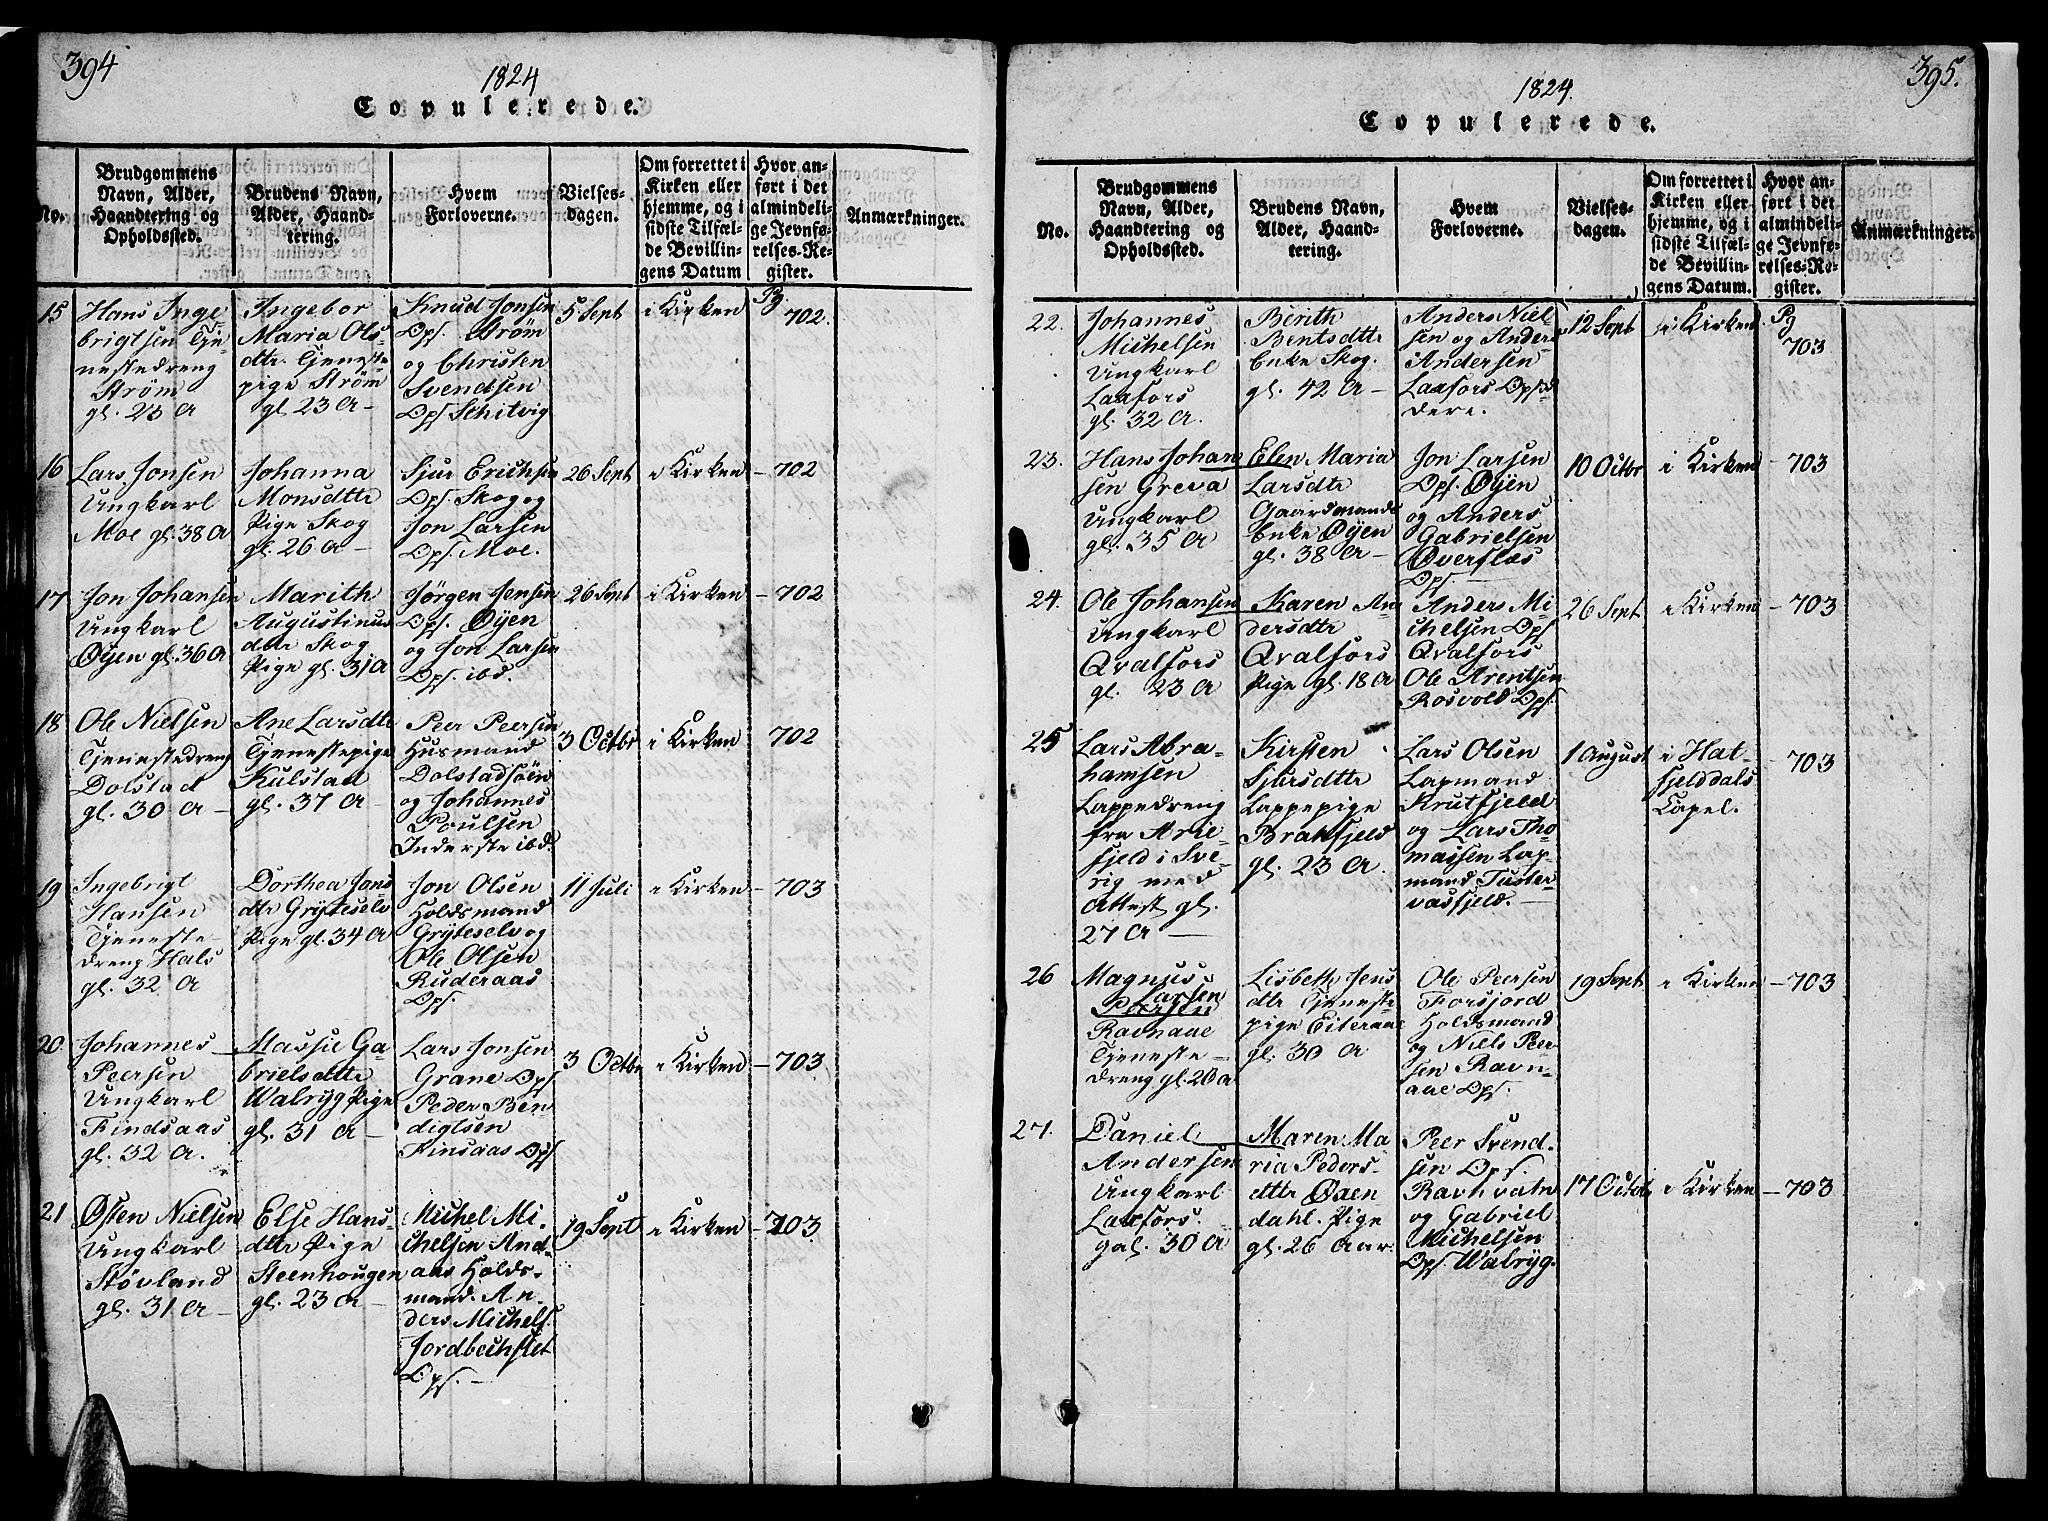 394
1824
Copulerede.
No.
Brudgommens
Navn, Alder,
Haandtering og
Opholdssted.
Brudens Navn,
Alder, Haand-
tering.
Hvem
Forloverne.
Vielses-
dagen.
Om forrettet i
Kirken eller
hjemme, og i
sidste Tilfæl-
de Bevillin-
gens Datum
Hvor an-
ført i det
almindeli-
ge Jevnfø-
relses-Re-
gister.
Anmærkninger.
15
Hans Inge
brigtsen Tje
nestedreng
Strøm
gl. 23 A
Ingebor
Maria Ols
dtr. Tjeneste
pige Strøm
gl. 23 A –
Knud Jonsen
Ops. Strøm
og Christen
Svendsen
Ops Schitvig
5 Sept
i Kirken
Pg.
702.
16
Lars Jonsen
Ungkarl
Moe gl. 38 A
Johanna
Monsdtr
Pige Skog
gl. 26 A –
Sjur Erichsen
Ops. Skog og
Jon Larsen
Ops. Moe.
26 Sept
i Kirken
– 702
17
Jon Johansen
Ungkarl
Øyen gl. 36 A
Marith
Augustinus
dtr Skog
Pige gl. 31 A
Jørgen Jensen
Ops. Øyen
og Jon Larsen
Ops. ibd.
26 Sept
i Kirken
– 702
18
Ole Nielsen
Tjenestedreng
Dolstad
gl. 30 A –
Ane Larsdtr
Tjenestepige
Kulstad
gl. 37 A –
Peer Peersen
Husmand
Dolstadsøen
og Johannes
Poulsen
Inderste ibd.
3 Octbr
i Kirken
– 702
19
Ingebrigt
Hansen
Tjeneste-
dreng Hals
gl. 32 A
Dorthea Jons
dtr Gryteselv
Pige gl. 34 A
Jon Olsen
Holdsmand
Gryteselv og
Ole Olsen
Ruderaas
Ops.
11 Juli
i Kirken
– 703
20.
Johannes
Peersen
Ungkarl
Findsaas
gl. 32 A.
Massie Ga-
brielsdtr
Walryg Pige
gl. 31 A –
Lars Jonsen
Grane Ops
Peder Ben
digtsen
Finsaas Ops
3 Octbr
i Kirken
– 703
21
Østen Nielsen
Ungkarl
Støvland
gl. 31 A –
Else Hans-
dtr Pige
Steenhougen
gl. 23 A –
Michel Mi-
chelsen And-
aas Holds-
mand. An-
ders Michels.
Jordbechslet
Ops. –
19 Sept
i Kirken
– 703
395.
1824.
Copulerede.
No.
Brudgommens
Navn, Alder,
Haandtering og
Opholdssted.
Brudens Navn,
Alder, Haand-
tering.
Hvem
Forloverne.
Vielses-
dagen.
Om forrettet i
Kirken eller
hjemme, og i
sidste Tilfæl-
de Bevillin-
gens Datum.
Hvor an-
ført i det
almindeli-
ge Jevnfø-
relses-Re-
gister.
Anmærkninger.
22.
Johannes
Michelsen
Ungkarl
Laafors
gl. 32 A.
Berith
Bentsdtr
Enke Skog.
gl. 42 A –
Anders Niel-
sen og Anders
Andersen
Laafors Ops
dere.
12 Sept
i Kirken.
Pg
703
23.
Hans Johan
sen Greva
Ungkarl
gl. 35 A
Elen Maria
Larsdtr
Gaardmands
Enke Øyen
gl. 38 A –
Jon Larsen
Ops. Øyen
og Anders
Gabrielsen
Øverflaes
Ops
10 Octbr
i Kirken
– 703
24.
Ole Johansen
Ungkarl
Qvalfors
gl. 23 A
Karen An-
dersdtr
Qvalfors
Pige gl. 18 A
Anders Mi-
chelsen Ops
Qvalfors
Ole Arentsen
Rosvold Ops.
26 Sept
i Kirken
– 703
25
Lars Abra-
hamsen
Lappedreng
fra Arie-
fjeld i Sve-
rig med
Attest gl.
27 A –
Kirsten
Sjursdtr
Lappepige
Brakfjeld
gl. 23 A.
Lars Olsen
Lapmand
Krutfjeld
og Lars Tho-
massen Lap-
mand Tuster-
vasfjeld. –
1 August
i Hat-
fjelddals
Capel.
– 703
26
Magnus
Larsen
Peersen
Ravnaae
Tjeneste –
dreng gl. 20 A
Lisbeth Jens
dtr Tjeneste
pige Eiteraae
gl. 30 A
Ole Peersen
Forsjord
Holdsmand
og Niels Peer
sen Ravn-
aae Ops.
19 Sept
i Kirken
– 703
27.
Daniel
Andersen
Ungkarl
Laafors.
gal. 30 A
Maren Ma
ria Peders-
dtr Øxen
dahl. Pige
gl. 26 Aar.
Peer Svend-
sen Ops.
Ravnvatn
og Gabriel
Michelsen
Ops. Walryg.
17 Octob.
i Kirken
– 703